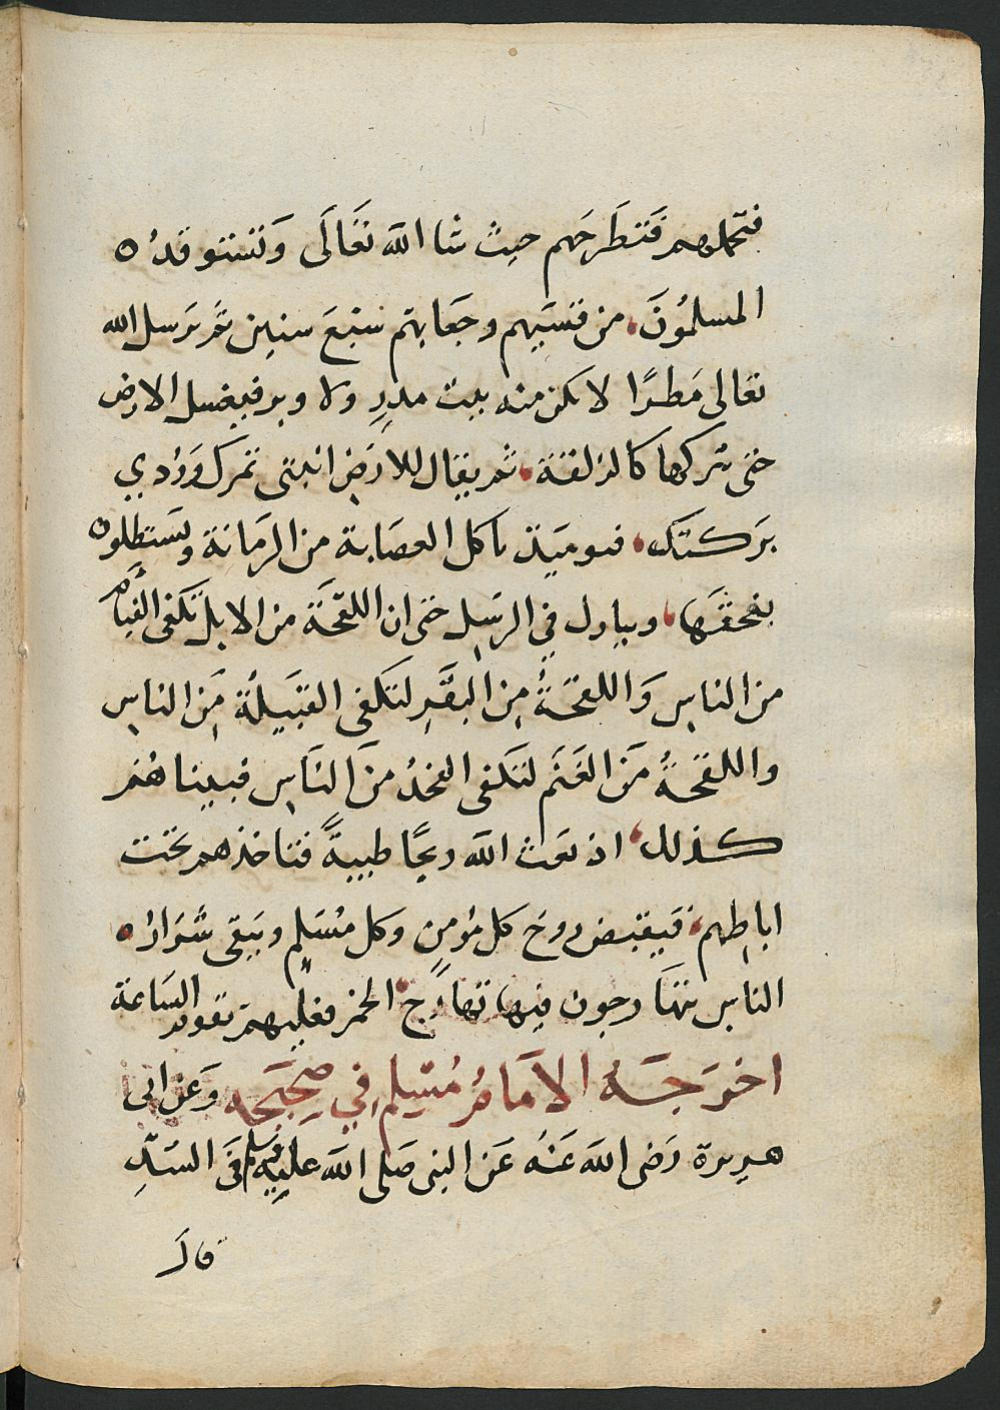 فتحملهم فتطرحهم حيث شا الله تعالى وتستوقد ه
المسلمون من قسيهم وجعابهم سبع سنين ثم يرسل الله
تعالى مطرًا لا يكن منه بيت مدر ولا وبر فيغسل الارض
حتى يتركها كالزلفة ثم يقال للارض انبتي ثمرك وردي
بركتك فيوميذ تاكل العصابة من الرمانة ويستظلون
بقحفها ويبارك في الرسل حتى ان اللقحة من الابل لتكفى الفيام
من الناس واللقحة من البقر لتكفى القبيلة من الناس
واللقحة من الغنم لتكفى الفخذ من الناس فبينا هم
كذلك اذ بعث الله ريحًا طيبة فتاخذهم تحت
اباطهم فيقبض روح كل مؤمن وكل مسلم ويبقى شرار ه
الناس يتهارجون فيها تهارج الحمر فعليهم تقوم الساعة
اخرجه الامام مسلم في صحيحه وعن ابي
هريرة رضى الله عنه عن النبى صلى الله عليه وسلم فى السد
قال